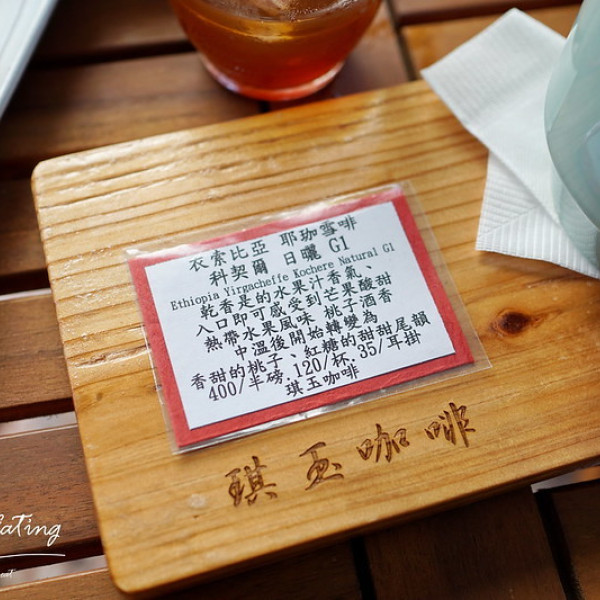 衣索比亞 耶珈雪啡
科契爾 日曬 G1
Ethiopia Yirgacheffe Kochere Natural G1
乾香是的水果汁香氣、
入口即可感受到芒果酸甜
熱帶水果風味 桃子酒香
中溫後開始轉變為
香甜的桃子、紅糖的甜甜尾韻
400/半磅.120/杯.35/耳掛
琪玉咖啡
琪玉咖啡